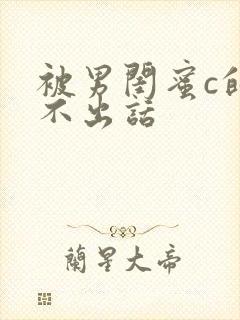 被男閨蜜c的
不出話
蘭星大帝